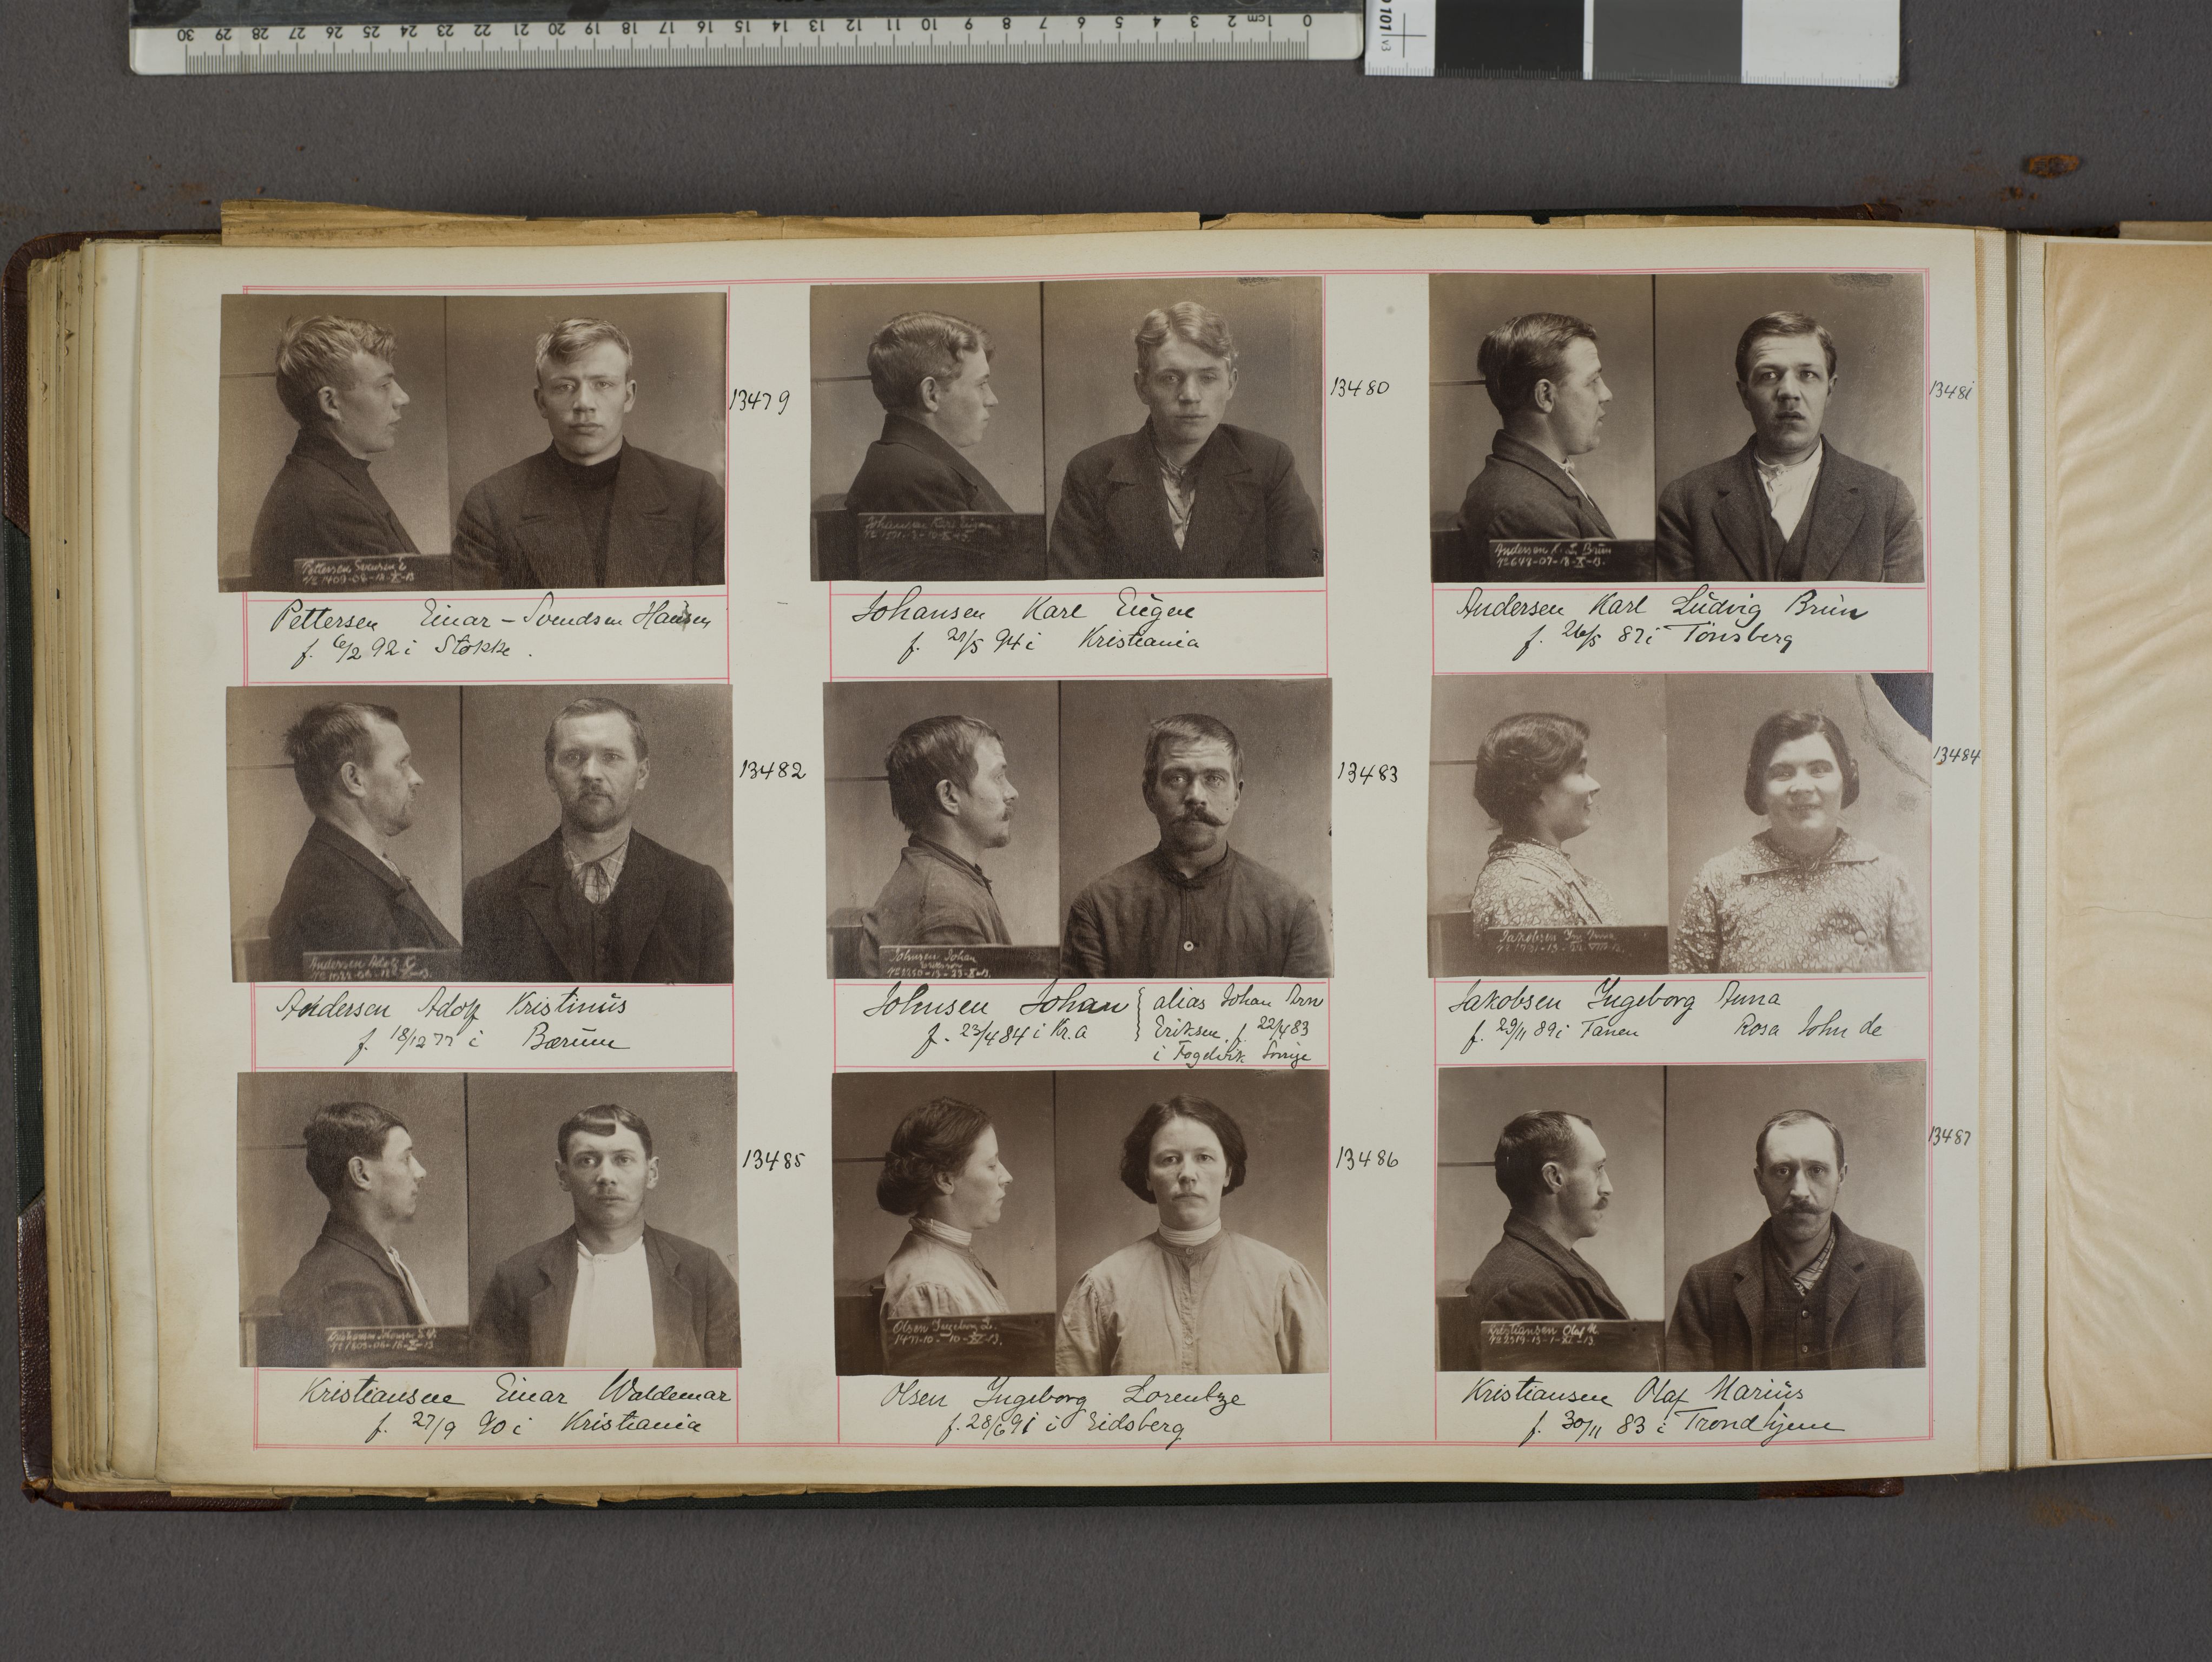 30 29 28 27 26 25 24 23 22 21 20 19 18 17 16 15 14 13 12 11 10 9 8 7 6 5 4 3 2 1cm 0
101 v3
13479
Pettersen Einar - Svendsen Hansen
f. 6/2 92 i Stokke.
13480
Johansen Karl Eugen
Johansen Karl Eugen
f. 21/5 94 i Kristiania
13481
Andersen K. L. Brun
No 648-07-18-X-13.
Andersen Karl Ludvig Brun
f. 26/5 87 i Tønsberg
13482
Andersen Adolf K.
Andersen Adolf Kristinus
f. 18/12 77 i Bærum
13483
Johnsen Johan
Eriksson
No 2250-13-23-X-13.
Johnsen Johan
f. 23/4 84 i Kr.a
alias Johan Arn
Eriksen, f. 22/4 83
i Fogelvik Sverige
13484
Jakobsen Ing. Anna
Jakobsen Ingeborg Anna
f. 29/11 89 i Tanen Rosa John de
13485
Kristiansen Einar Waldemar
f. 27/9 90 i Kristiania
13486
Olsen Ingeborg L.
1477-10-10-XI-13.
Olsen Ingeborg Lorentze
f. 28/6 91 i Eidsberg
13487
Kristiansen Olaf M.
No 2319-13-1-XI-13
Kristiansen Olaf Marius
f. 30/11 83 i Trondhjem